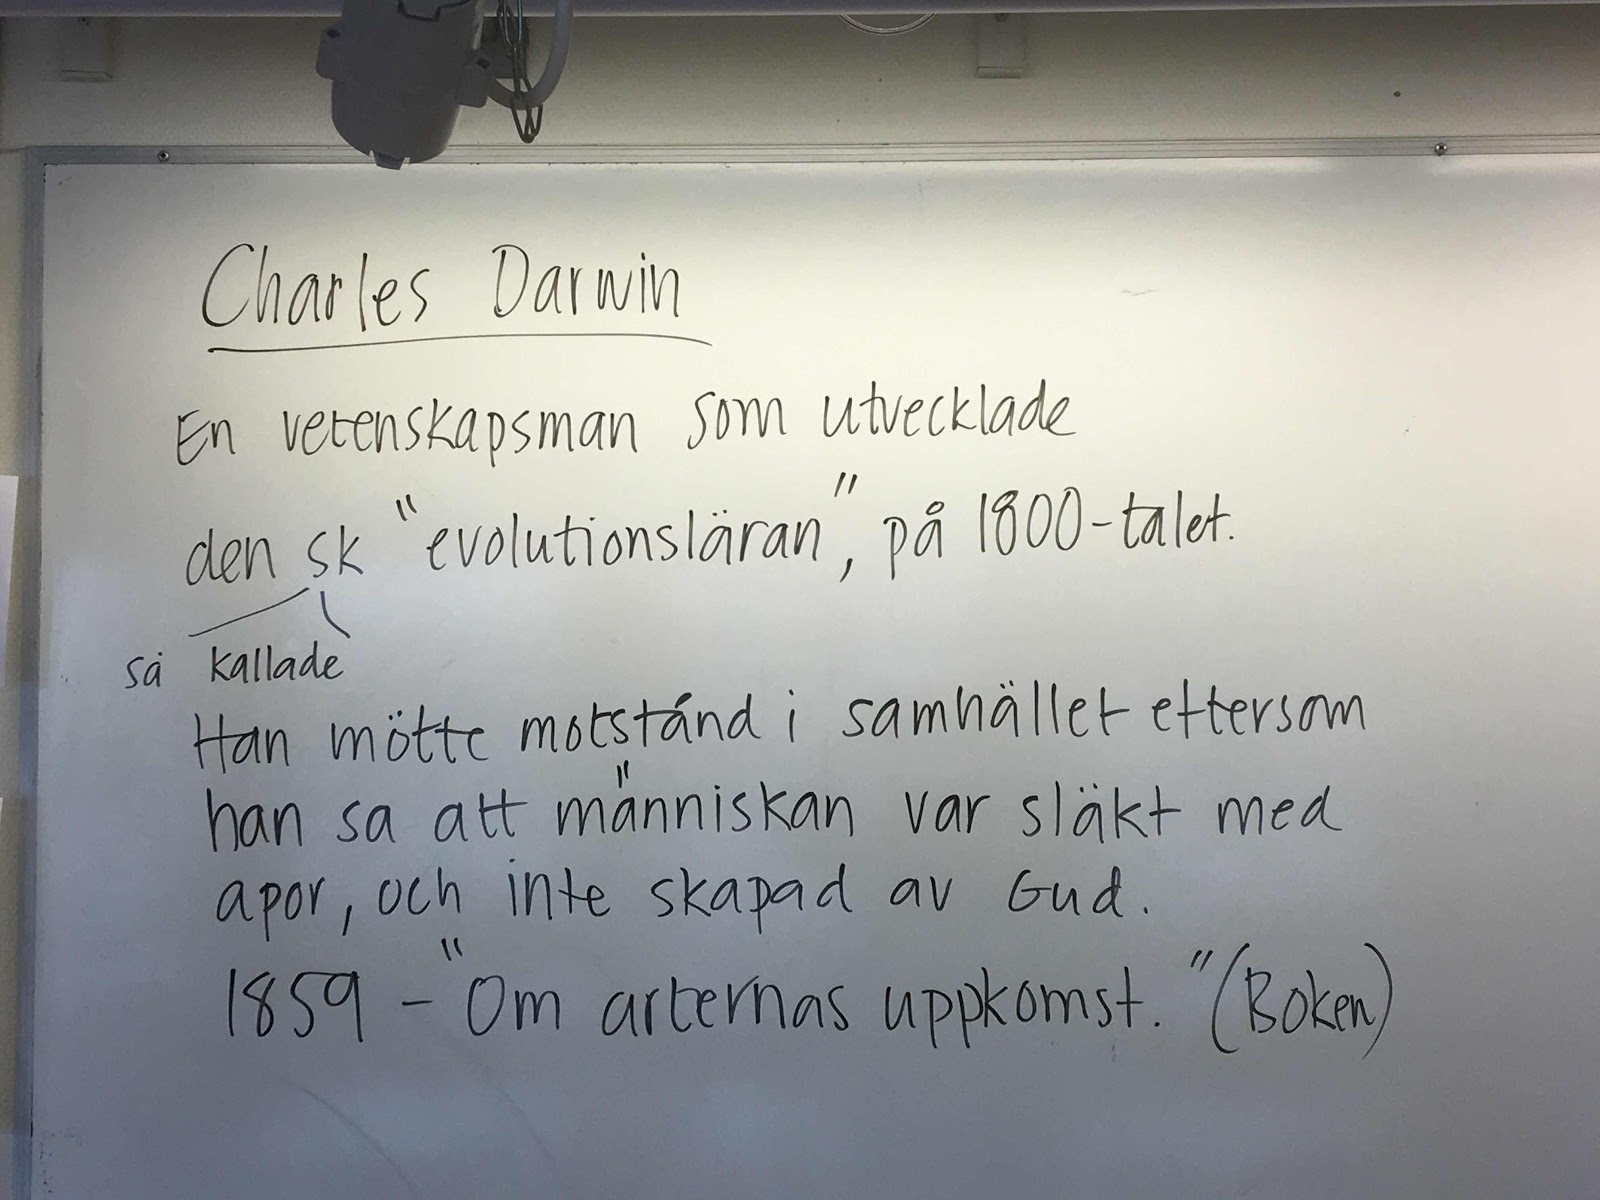 Charles Darwin
En vetenskapsman som utvecklade
den sk "evolutionsläran", på 1800-talet.
så kallade
Han mötte motstånd i samhället eftersom
han sa att "människan var släkt med
apor, och inte skapad av Gud.
1859 - "Om arternas uppkomst." (Boken)